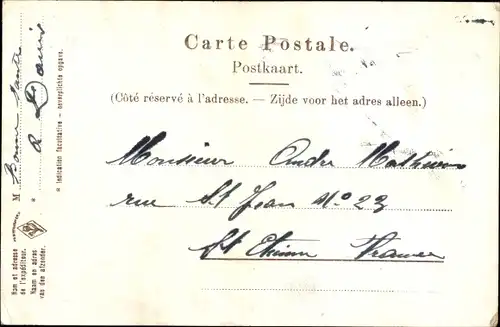 Carte Postale.
Postkaart.
(Côté réservé à l'adresse. — Zijde voor het adres alleen.)
Monsieur Andre Mathieu
rue St Jean No 23
St Etienne France
M Bonne Sante
à Paris
* Indication facultative — onverplichte opgave.
Nom et adresse de l'expéditeur.
Naam en adres van den afzender.